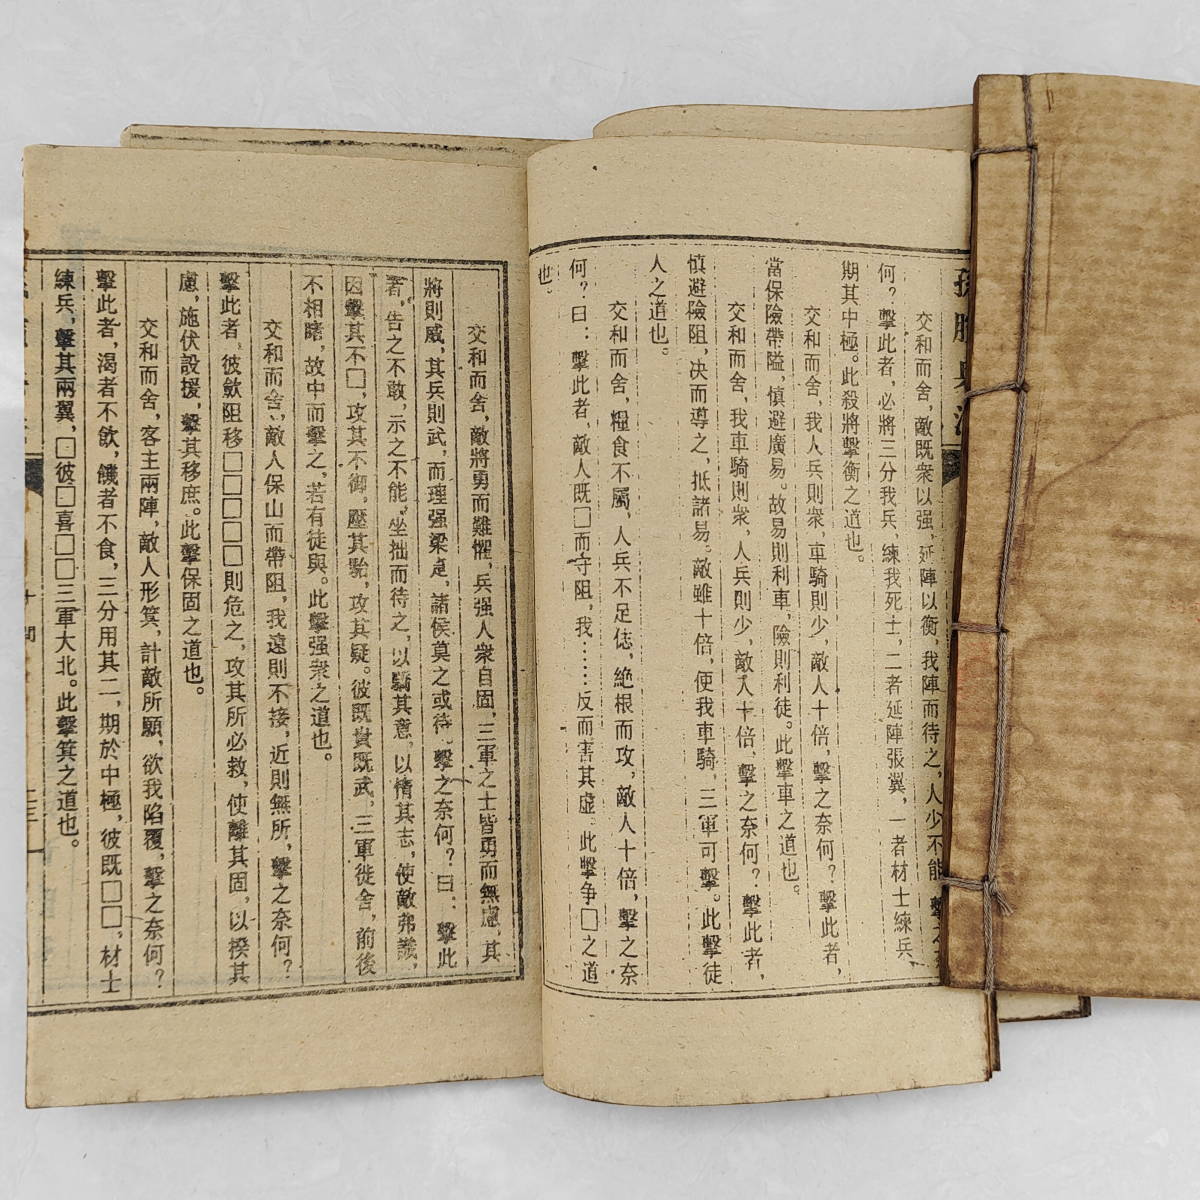 孫臏兵法
交和而舍，敵既衆以强，延陣以衡，我陣而待之，人少不能，擊之
何？擊此者，必將三分我兵，練我死士，二者延陣張翼，一者材士練兵，
期其中極。此殺將擊衡之道也。
交和而舍，我人兵則衆，車騎則少，敵人十倍，擊之奈何？擊此者，
當保險帶隘，慎避廣易。故易則利車，險則利徒。此擊車之道也。
交和而舍，我車騎則衆，人兵則少，敵人十倍，擊之奈何？擊此者，
慎避險阻，决而導之，抵諸易。敵雖十倍，便我車騎，三軍可擊。此擊徒
人之道也。
交和而舍，糧食不屬，人兵不足俧，絶根而攻，敵人十倍，擊之奈
何？曰：擊此者，敵人既□而守阻，我……反而害其虚。此擊争□之道
也。
交和而舍，敵將勇而難懼，兵强人衆自固，三軍之士皆勇而無慮，其
將則威，其兵則武，而理强梁𠃵，諸侯莫之或待。擊之奈何？曰：擊此
者，告之不敢，示之不能，坐拙而待之，以驕其意，以惰其志，使敵弗識，
因擊其不□，攻其不御，壓其駘，攻其疑。彼既貴既武，三軍徙舍，前後
不相睹，故中而擊之，若有徒與。此擊强衆之道也。
交和而舍，敵人保山而帶阻，我遠則不接，近則無所，擊之奈何？
擊此者，彼斂阻移□□□□□則危之，攻其所必救，使離其固，以揆其
慮，施伏設援，擊其移庶。此擊保固之道也。
交和而舍，客主兩陣，敵人形箕，計敵所願，欲我陷覆，擊之奈何？
擊此者，渴者不飲，饑者不食，三分用其二，期於中極，彼既□□，材士
練兵，擊其兩翼，□彼□喜□□三軍大北。此擊箕之道也。
十問